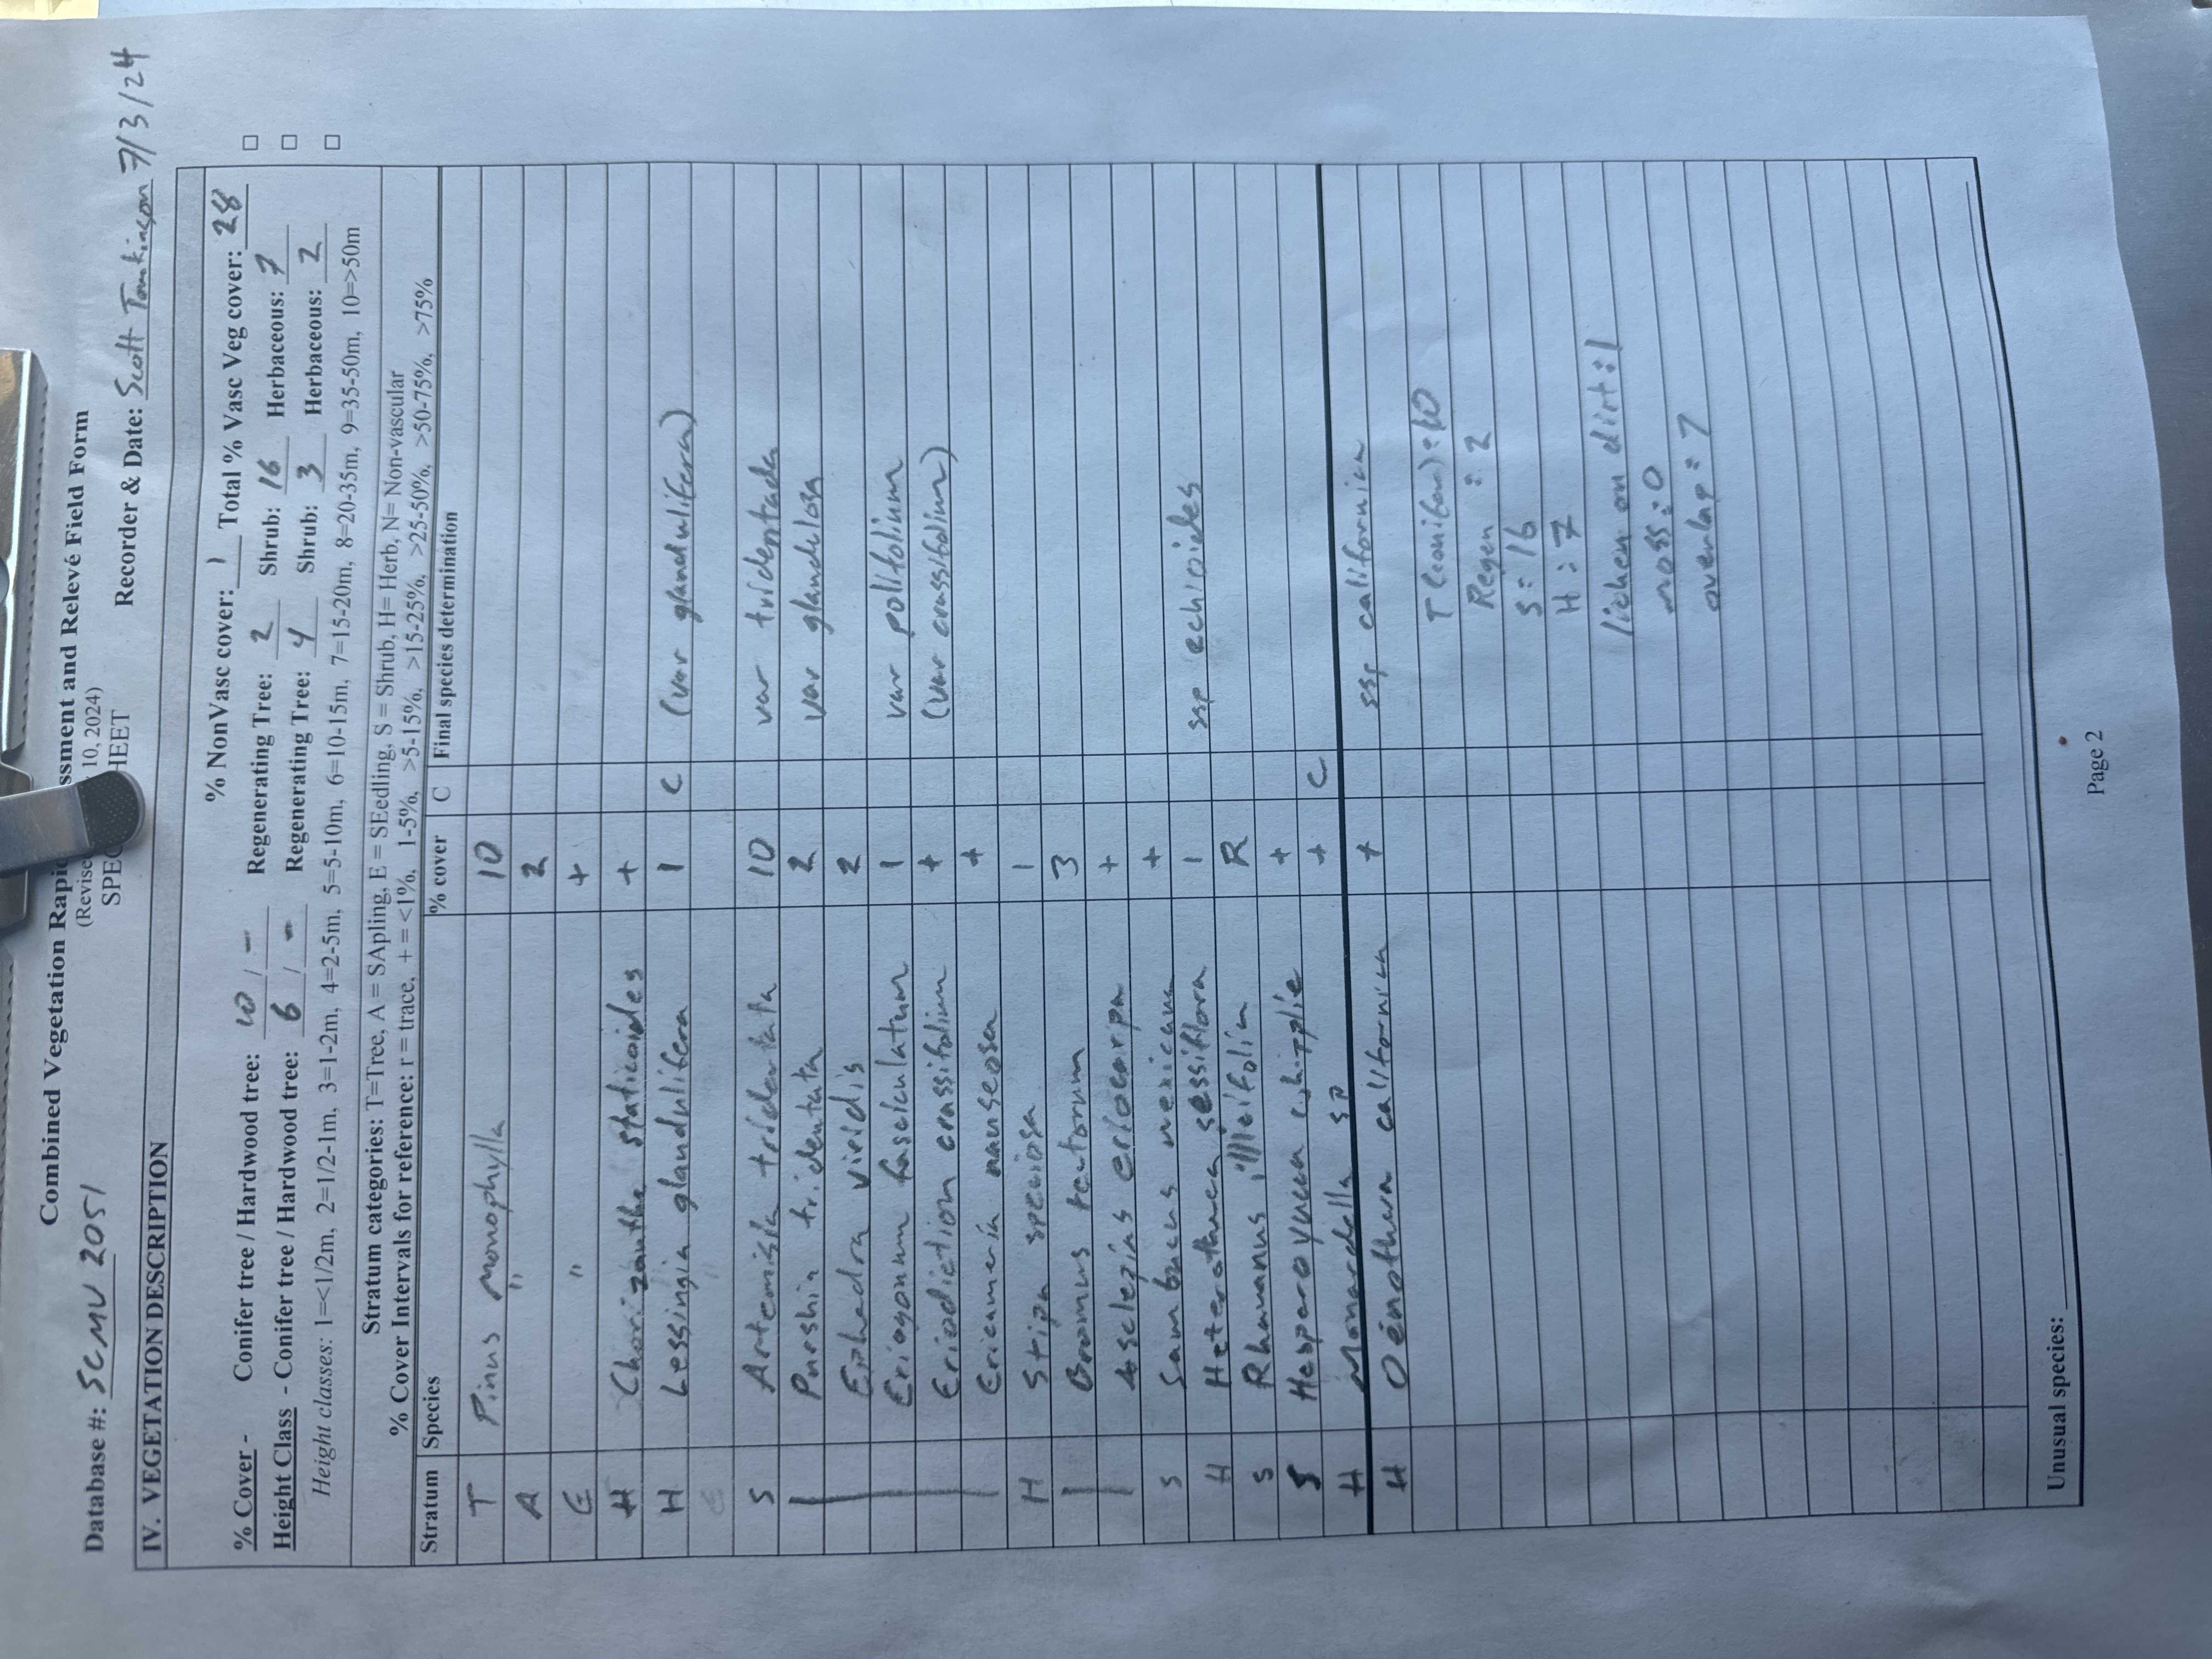 Combined Vegetation Rapi ssment and Relevé Field Form
(Revise 10, 2024)
SPEC HEET
Database #: SCMU 2051 Recorder & Date: Scott Tomkinson 7/3/24
IV. VEGETATION DESCRIPTION
% NonVasc cover: 1 Total % Vasc Veg cover: 28
% Cover - Conifer tree / Hardwood tree: 10 / - Regenerating Tree: 2 Shrub: 16 Herbaceous: 7
Height Class - Conifer tree / Hardwood tree: 6 / - Regenerating Tree: 4 Shrub: 3 Herbaceous: 2
Height classes: 1=<1/2m, 2=1/2-1m, 3=1-2m, 4=2-5m, 5=5-10m, 6=10-15m, 7=15-20m, 8=20-35m, 9=35-50m, 10=>50m
Stratum categories: T=Tree, A = SApling, E = SEedling, S = Shrub, H= Herb, N= Non-vascular
% Cover Intervals for reference: r = trace, + = <1%, 1-5%, >5-15%, >15-25%, >25-50%, >50-75%, >75%
Stratum Species % cover C Final species determination
T Pinus monophylla 10
A " 2
E " +
H Chorizanthe staticoides +
H Lessingia glandulifera 1 C (var glandulifera)
E "
S Artemisia tridentata 10 var tridentada
Purshia tridentata 2 var glandulosa
Ephedra viridis 2
Eriogonum fasciculatum 1 var polifolium
Eriodiction crassifolium + (var crassifolium)
Ericameria nauseosa +
H Stipa speciosa 1
Bromus tectorum 3
Asclepias eriocarpa +
S Sambucus mexicana +
H Heterotheca sessiflora 1 ssp echioides
S Rhamanus illicifolia R
S Hesperoyucca whipplie +
H Monardella sp + C
H Oenothera californica + ssp californica
T (conifer): 10
Regen : 2
S: 16
H: 7
lichen on dirt: 1
moss: 0
overlap: 7
Unusual species:
Page 2